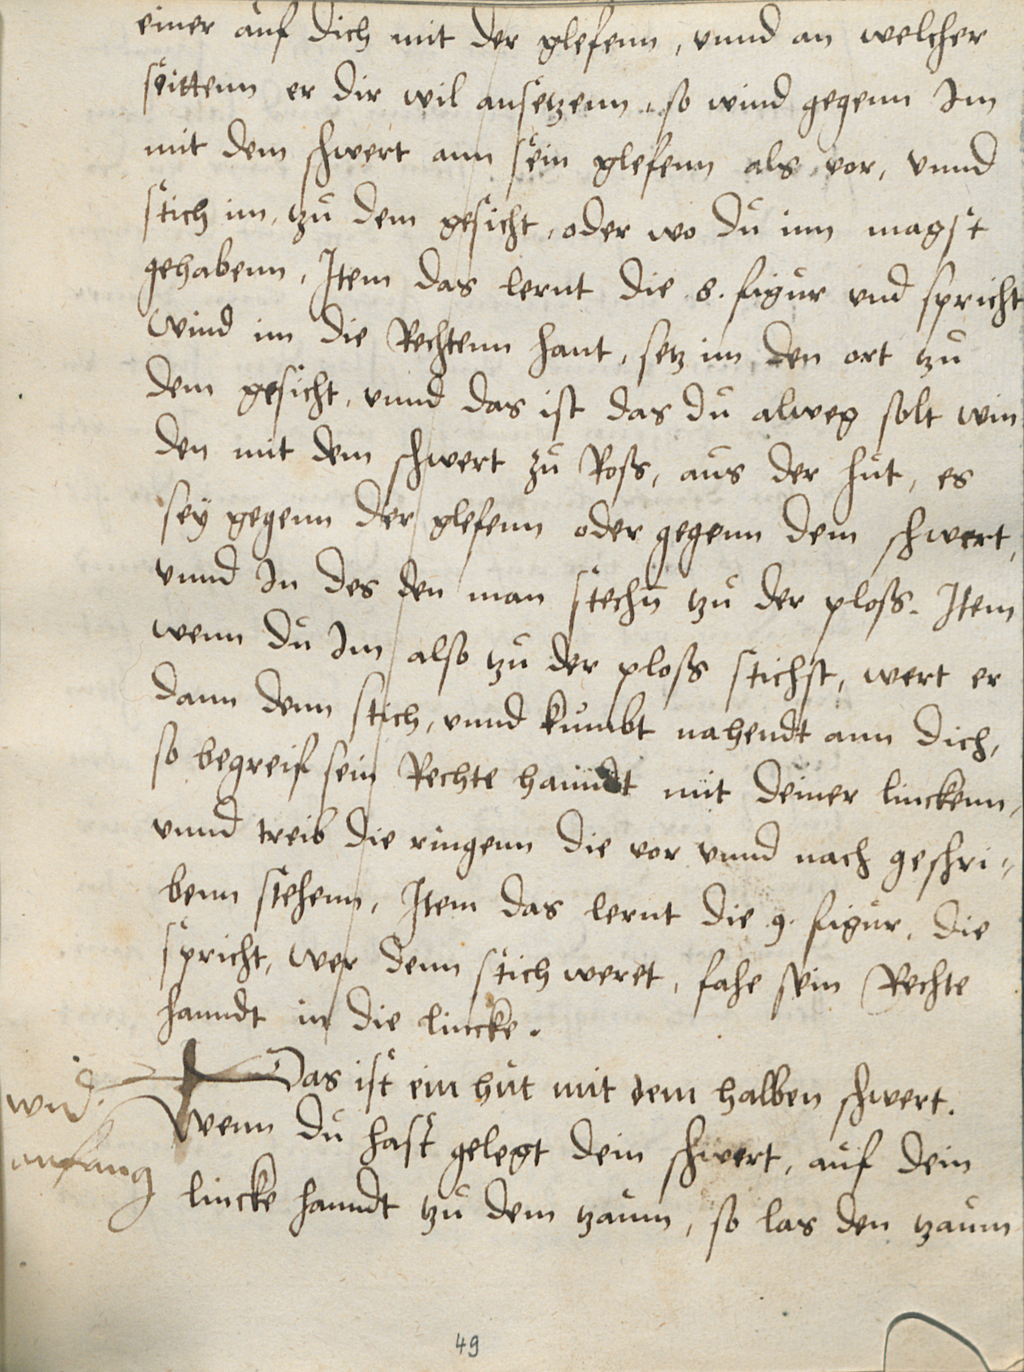 einer auf dich mit der glefenn, vnnd an welcher
seittenn er dir wil ansetzenn, so wind gegenn Im
mit dem schwert ann sein glefenn als vor, vnnd
stich im, tzu dem gesicht, oder wo du inn magst
gehabenn, Item das lernt die 8. figur vnd spricht
Wind im die Rechtenn hant, setz im den ort tzu
dem gesicht, vnnd das ist das du alweg solt win
den mit dem schwert zu Roß, aus der hut, es
sey gegenn der glefenn oder gegenn dem schwert,
vnnd In des den man stechn̄ tzu der ploß. Item
wenn du Im also tzu der ploß stichst, wert er
dann denn stich, vnnd kumbt nahendt ann dich,
so begreif sein Rechte hanndt mit deiner linckenn,
vnnd treib die ringenn die vor vnnd nach geschri-
benn stehenn, Item das lernt die 9. figur, die
spricht, wer denn stich weret, fahe sein Rechte
hanndt in die lincke.
Das ist ein hut mit dem halben schwert.
Wenn du hast gelegt dein schwert, auf dein
lincke hanndt tzu dem tzaum, so las den tzaum
anfang
49